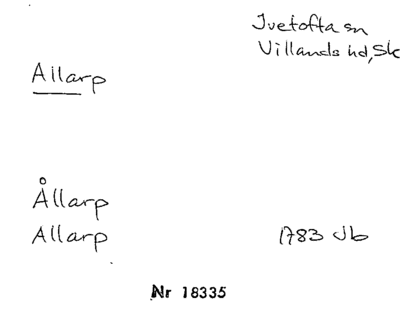 Ivetofta sn
Villands hd, Sk
Allarp
Ållarp
Allarp 1783 Jb
Nr 18335